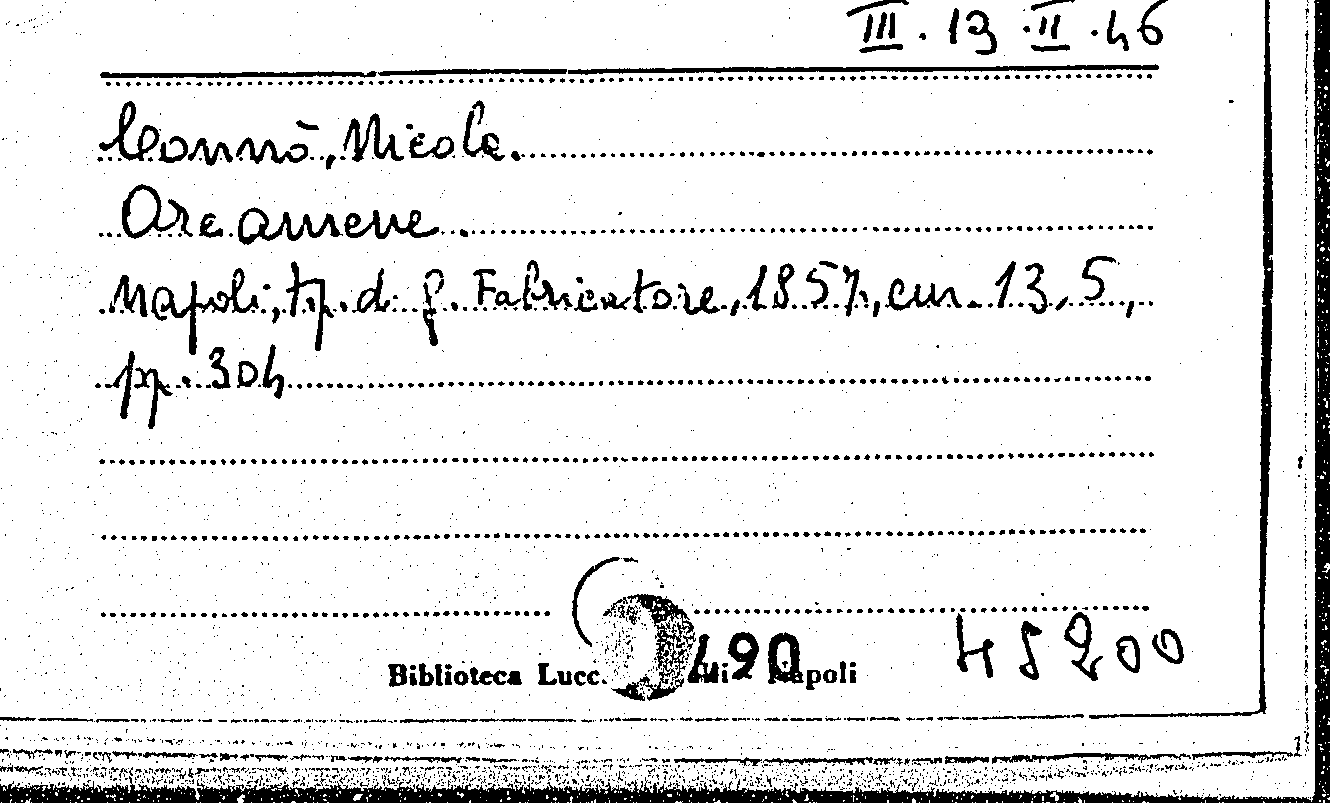 III.19.II.46
Connò, Nicola.
Ore amene.
Napoli, tip. di f. Fabricatore, 1857, cm. 13,5,
pp. 304
490
Biblioteca Lucc. Napoli
45200